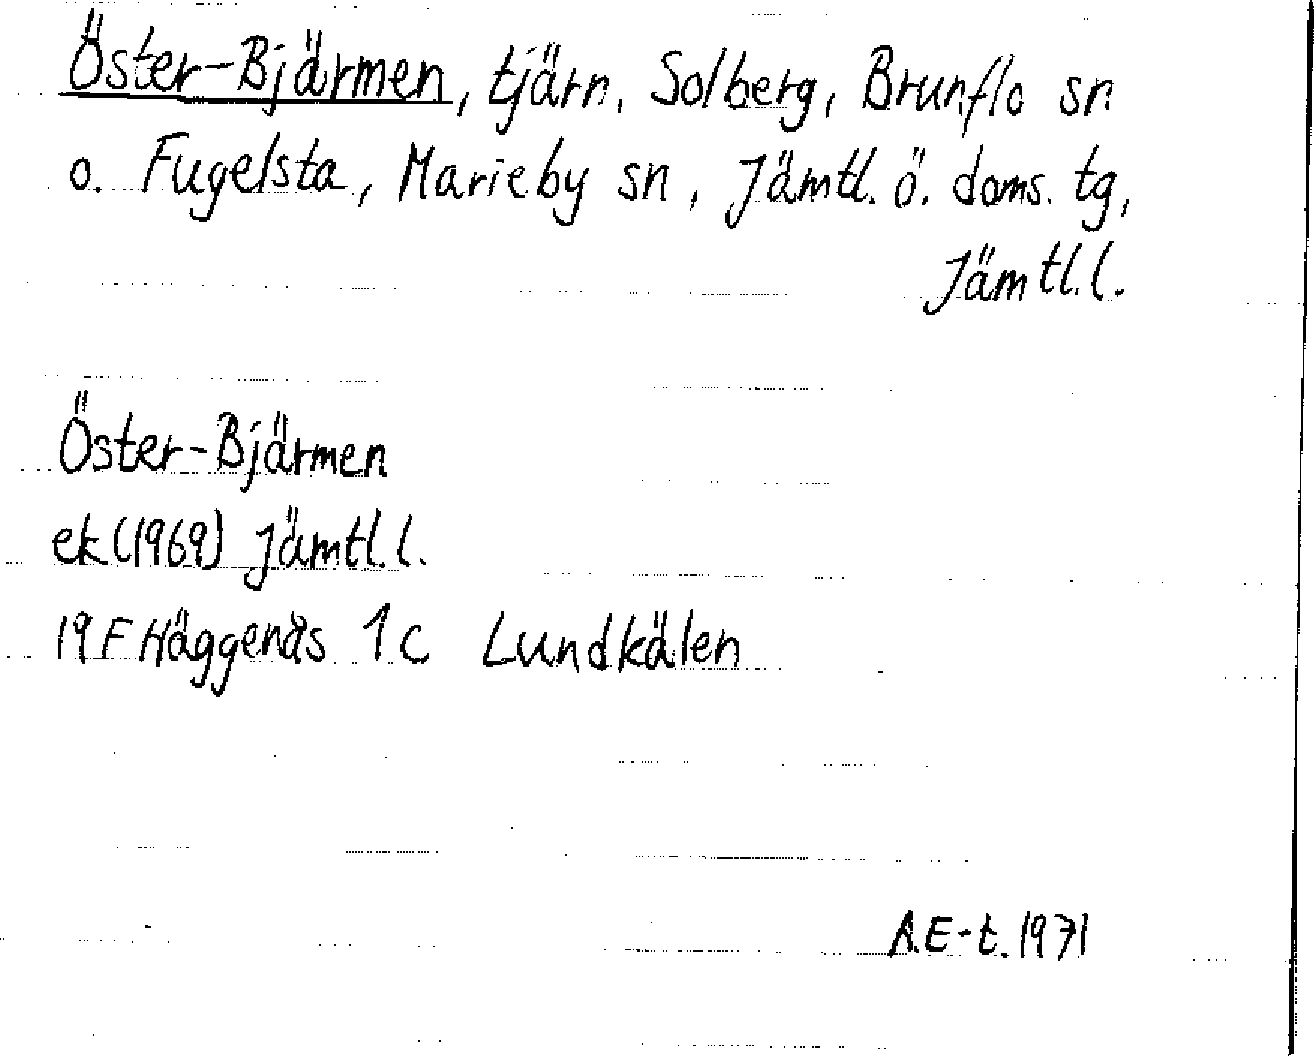 Öster-Bjärmen, tjärn, Solberg, Brunflo sn
o. Fugelsta, Marieby sn, Jämtl. ö. doms. tg,
Jämtl.l.
Öster-Bjärmen
ek (1969) Jämtl.l.
19F Häggenås 1c Lundkälen
A.E-t. 1971